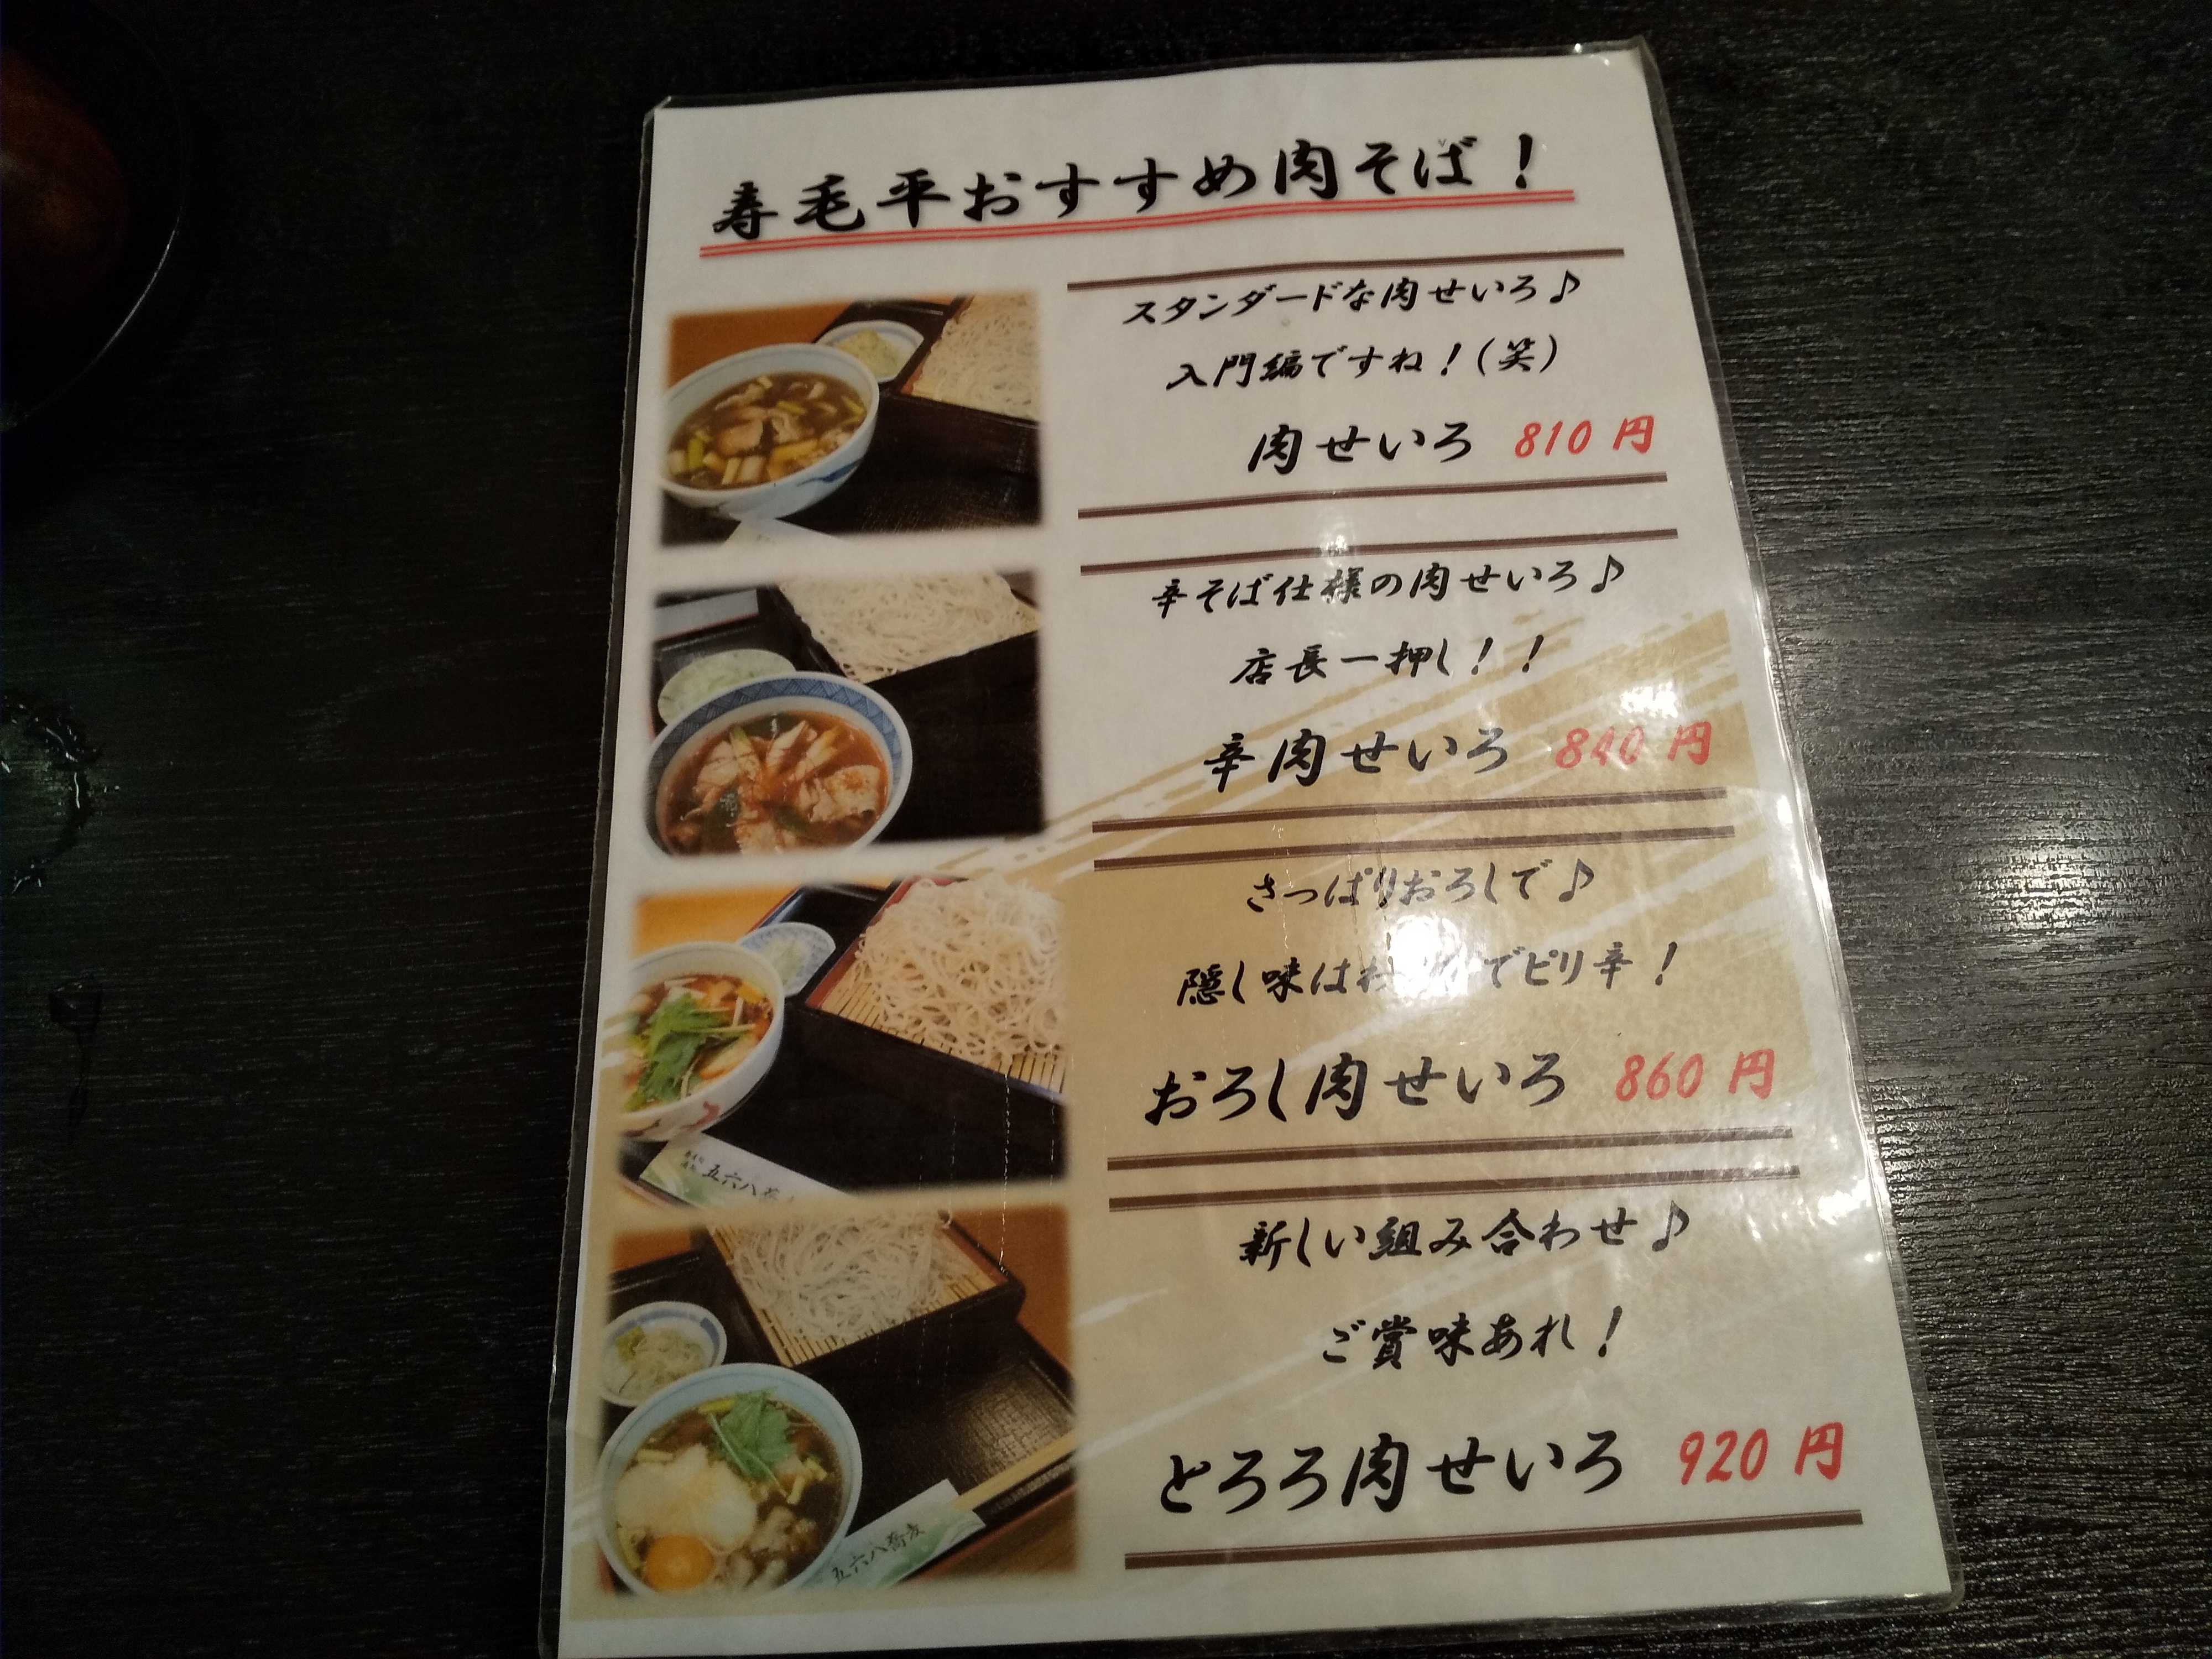 寿毛平おすすめ肉そば！
スタンダードな肉せいろ♪
入門編ですね！(笑)
肉せいろ 810 円
辛そば仕様の肉せいろ♪
店長一押し！！
辛肉せいろ 840 円
さっぱりおろしで♪
隠し味は でピリ辛！
おろし肉せいろ 860 円
五六八蕎
新しい組み合わせ♪
ご賞味あれ！
とろろ肉せいろ 920 円
五六八蕎麦